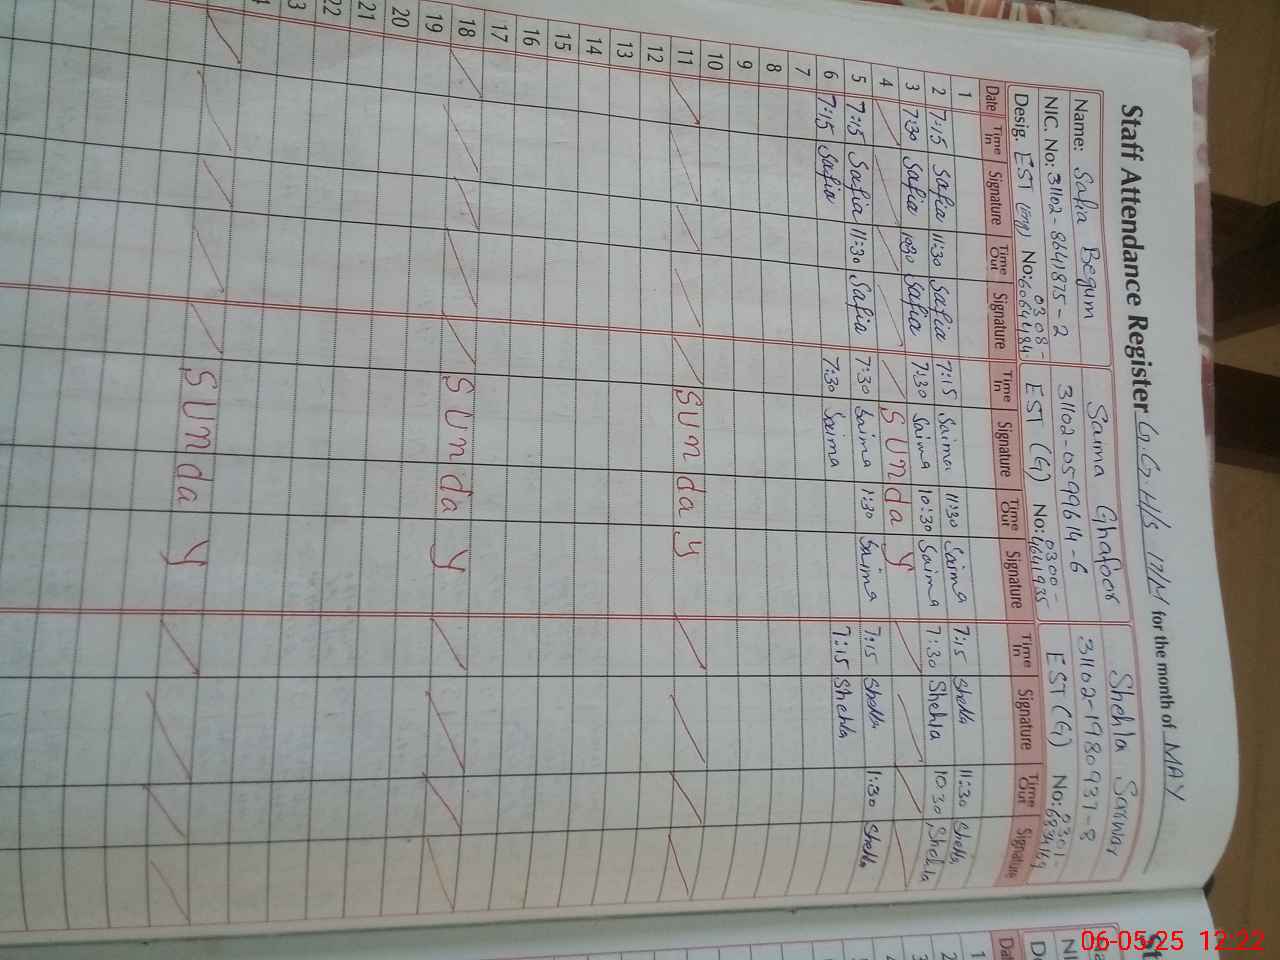 Staff Attendance Register G.G.H/S 17/M for the month of MAY
Name: Safia Begum Saima Ghafoor Shehla Sarwar
NIC. No: 31102-8641875-2 31102-0599614-6 31102-1980937-8
Desig. EST (eng) No: 0308-6064484 EST (G) No: 0300-4641935 EST (G) No: 0301-6834149
Date Time In Signature Time Out Signature Time In Signature Time Out Signature Time In Signature Time Out Signature
1
2 7:15 Safia 11:30 Safia 7:15 Saima 11:30 Saima 7:15 Shehla 11:30 Shehla
3 7:30 Safia 10:30 Safia 7:30 Saima 10:30 Saima 7:30 Shehla 10:30 Shehla
4 Sunday
5 7:15 Safia 11:30 Safia 7:30 Saima 1:30 Saima 7:15 Shehla 1:30 Shehla
6 7:15 Safia 7:30 Saima 7:15 Shehla
7
8
9
10
11 Sunday
12
13
14
15
16
17
18 Sunday
19
20
21
22
Sunday
Dat
1
2
06-05-25 12:22